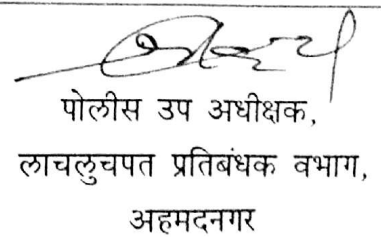 पोलीस उप अधीक्षक,
लाचलुचपत प्रतिबंधक वभाग,
अहमदनगर